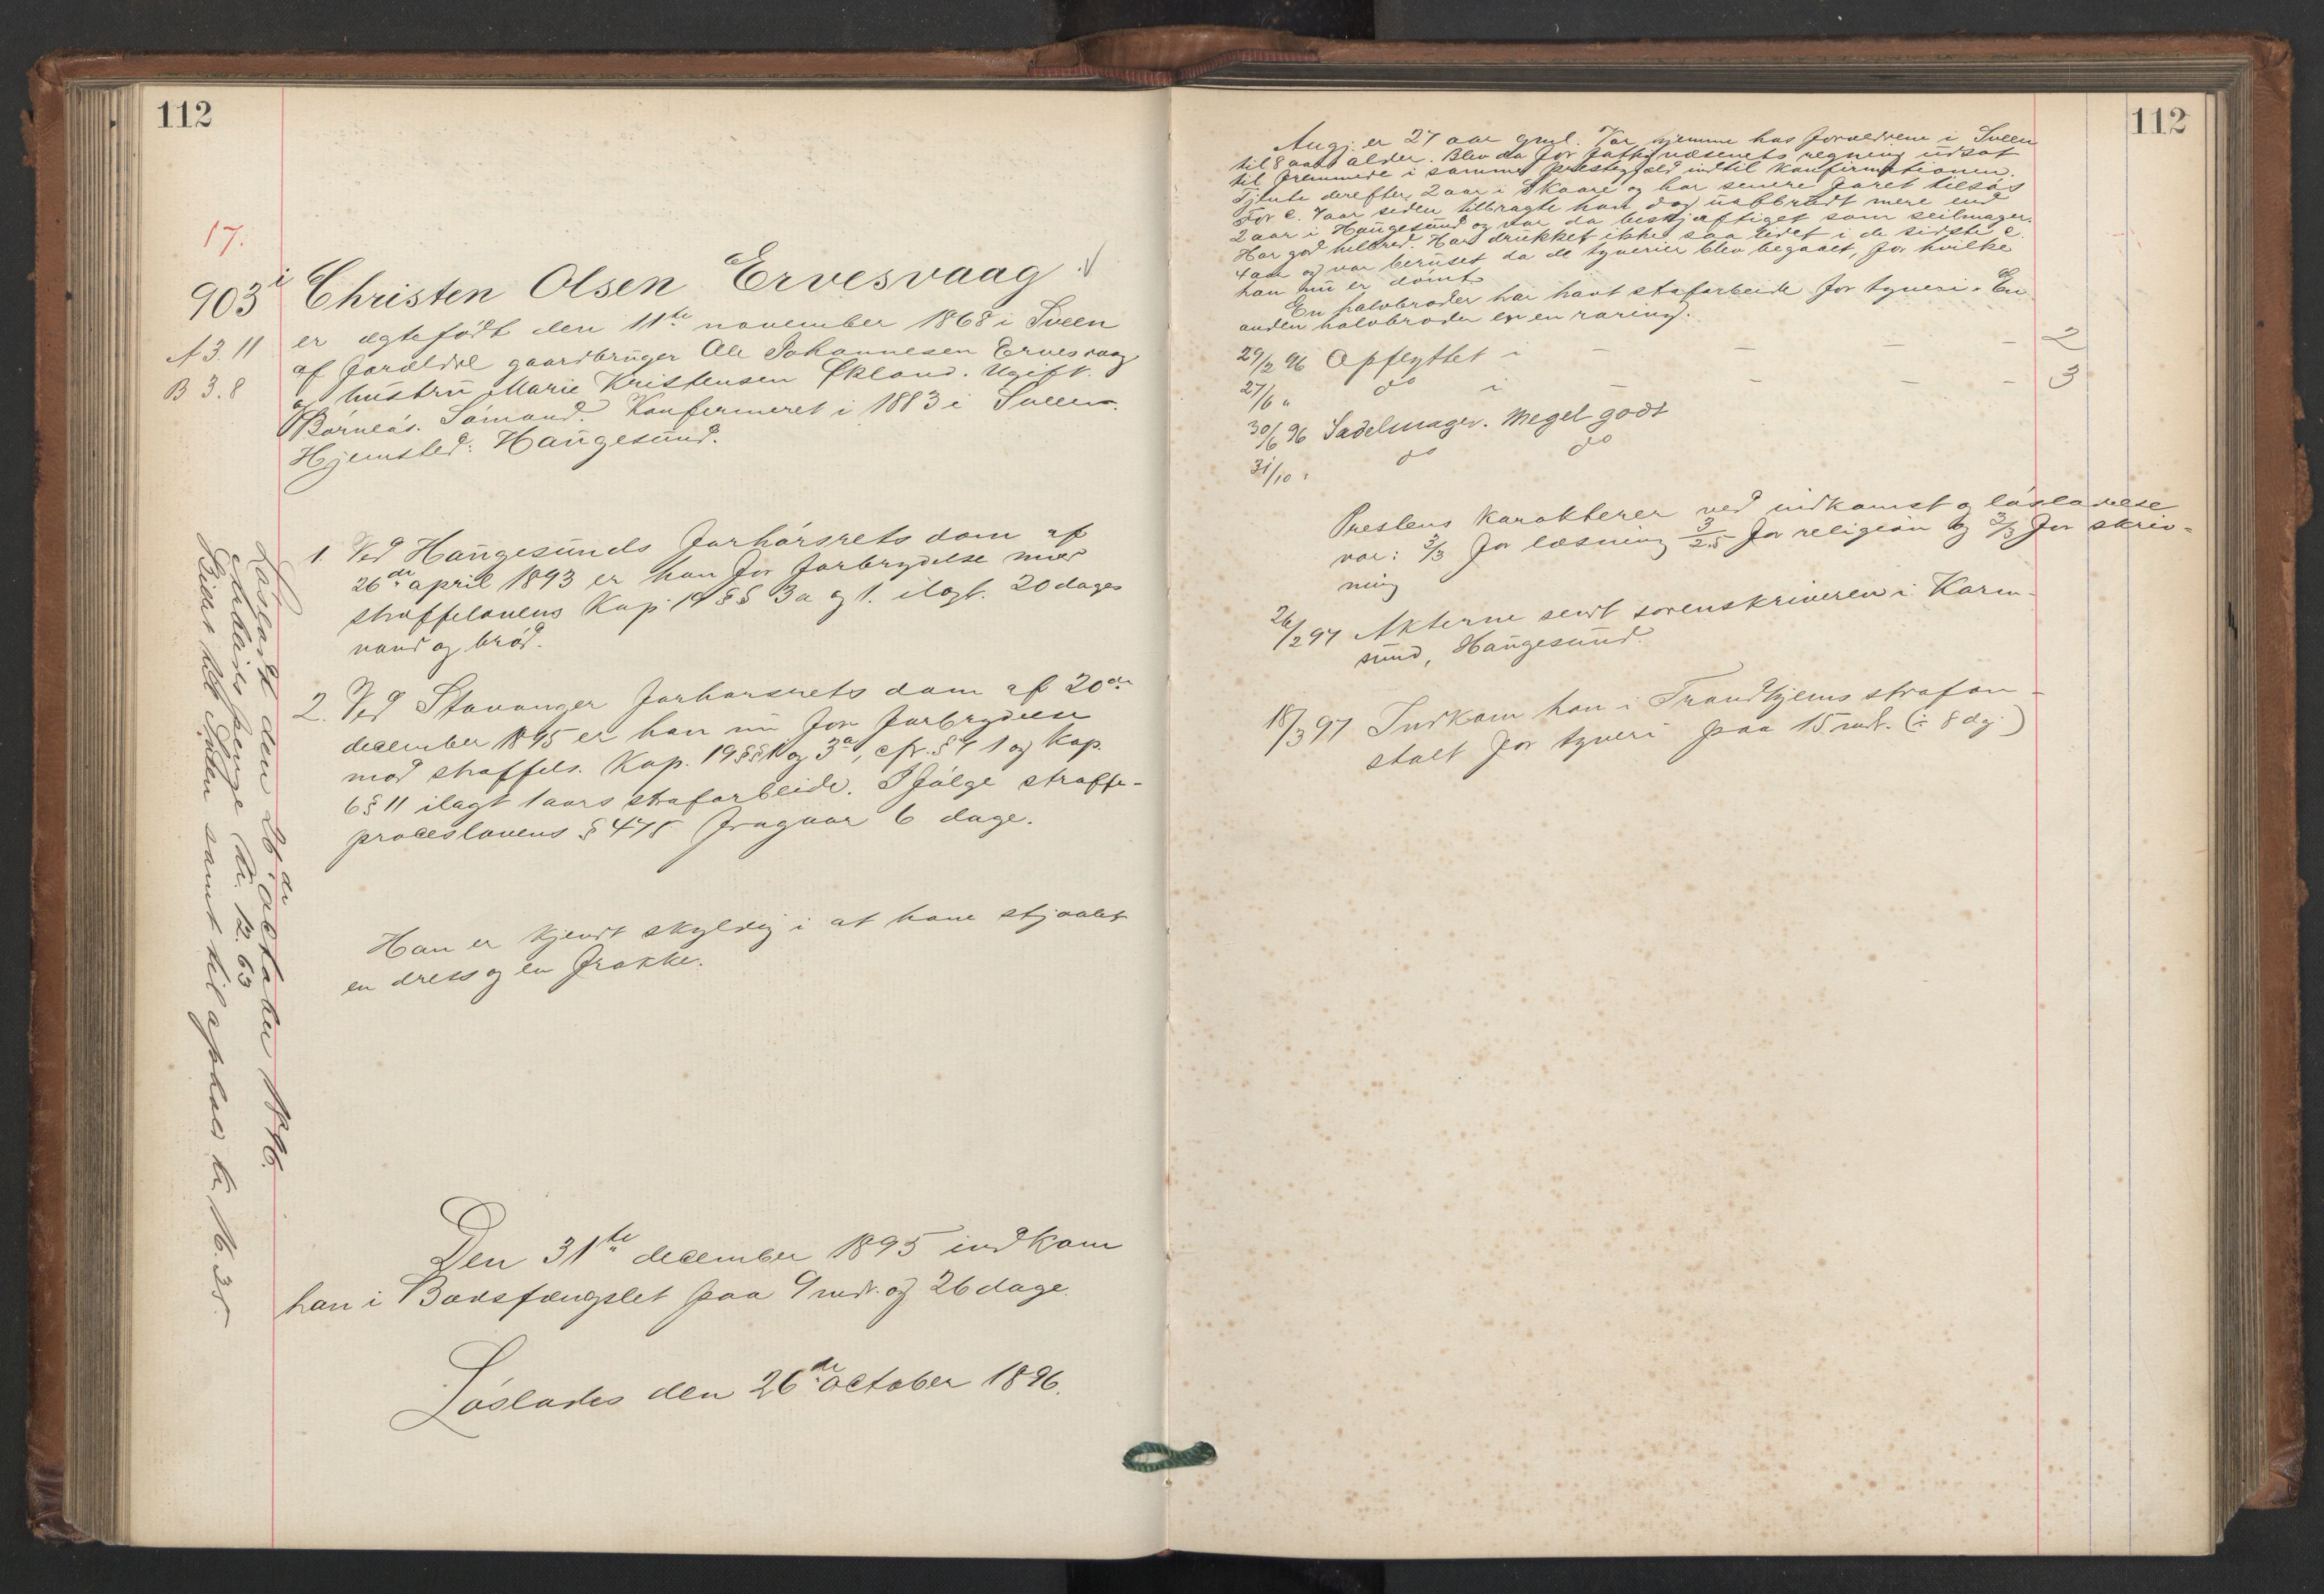 112
17.
903 i Christen Olsen Ervesvaag. √
A 3.11
B 3.8
er ægtefødt den 11te november 1868 i Sveen
af forældre gaardbruger Ole Johannesen Ervesvaag
og hustru Marie Kristensen Økland. Ugift.
Børnløs. Sømand. Konfirmeret i 1883 i Sveen.
Hjemsted: Haugesund.
1. Ved Haugesunds Forhørsrets dom af
26de april 1893 er han for forbrydelse mod
straffelovens Kap. 19 §§ 3a og 1. ilagt. 20 dages
vand og brød.
2. Ved Stavanger forhørsrets dom af 20de
december 1895 er han nu for forbrydelse
mod straffels. Kap. 19 §§ 1 og 3a, cfr. § 4 1 og Kap.
6 § 11 ilagt 1 aars strafarbeide. Ifølge straffe-
proceslovens § 475 fragaar 6 dage.
Han er kjendt skyldig i at have stjaalet
en dress og en frakke.
Den 31te december 1895 indkom
han i Bodsfængslet paa 9 mdr. og 26 dage.
Løslades den 26de october 1896.
Løsladt den 26de oktober 1896.
Arbeidspenge kr. 12.63
Bidrag til klæder samt til ophold kr. 16.35.
112
Angj. er 27 aar gml. Var hjemme hos forældrene i Sveen
til 8 aars alder. Blev da for fattigvæsenets regning udsat
til fremmede i samme prestegjeld indtil konfirmationen.
Tjente derefter 2 aar i Skaare og har senere faret tilsøs
For c. 7 aar siden tilbragte han dog uafbrudt mere end
2 aar i Haugesund og var da beskjæftiget som seilmager.
Har god helbred. Har drukket ikke saa lidet i de sidste c.
4 aar og var beruset da de tyverier blev begaaet, for hvilke
han nu er dømt.
En halvbroder har havt strafarbeide for tyveri. En
anden halvbroder er en raring.
29/2 96 Opflyttet i – – – – 2
27/6 " do i – – – – 3
30/6 96 Sadelmager. Meget godt
31/10 " do do
Prestens karakterer ved indkomst og løsladelse
var: 3/3 for læsning 3/2.5 for religion og 3/3 for skriv-
ning
26/2 97 Akterne sendt sorenskriveren i Karm-
sund, Haugesund.
18/3 97 Indkom han i Trondhjems strafan-
stalt for tyveri paa 15 mdr. (÷ 8 dg.)